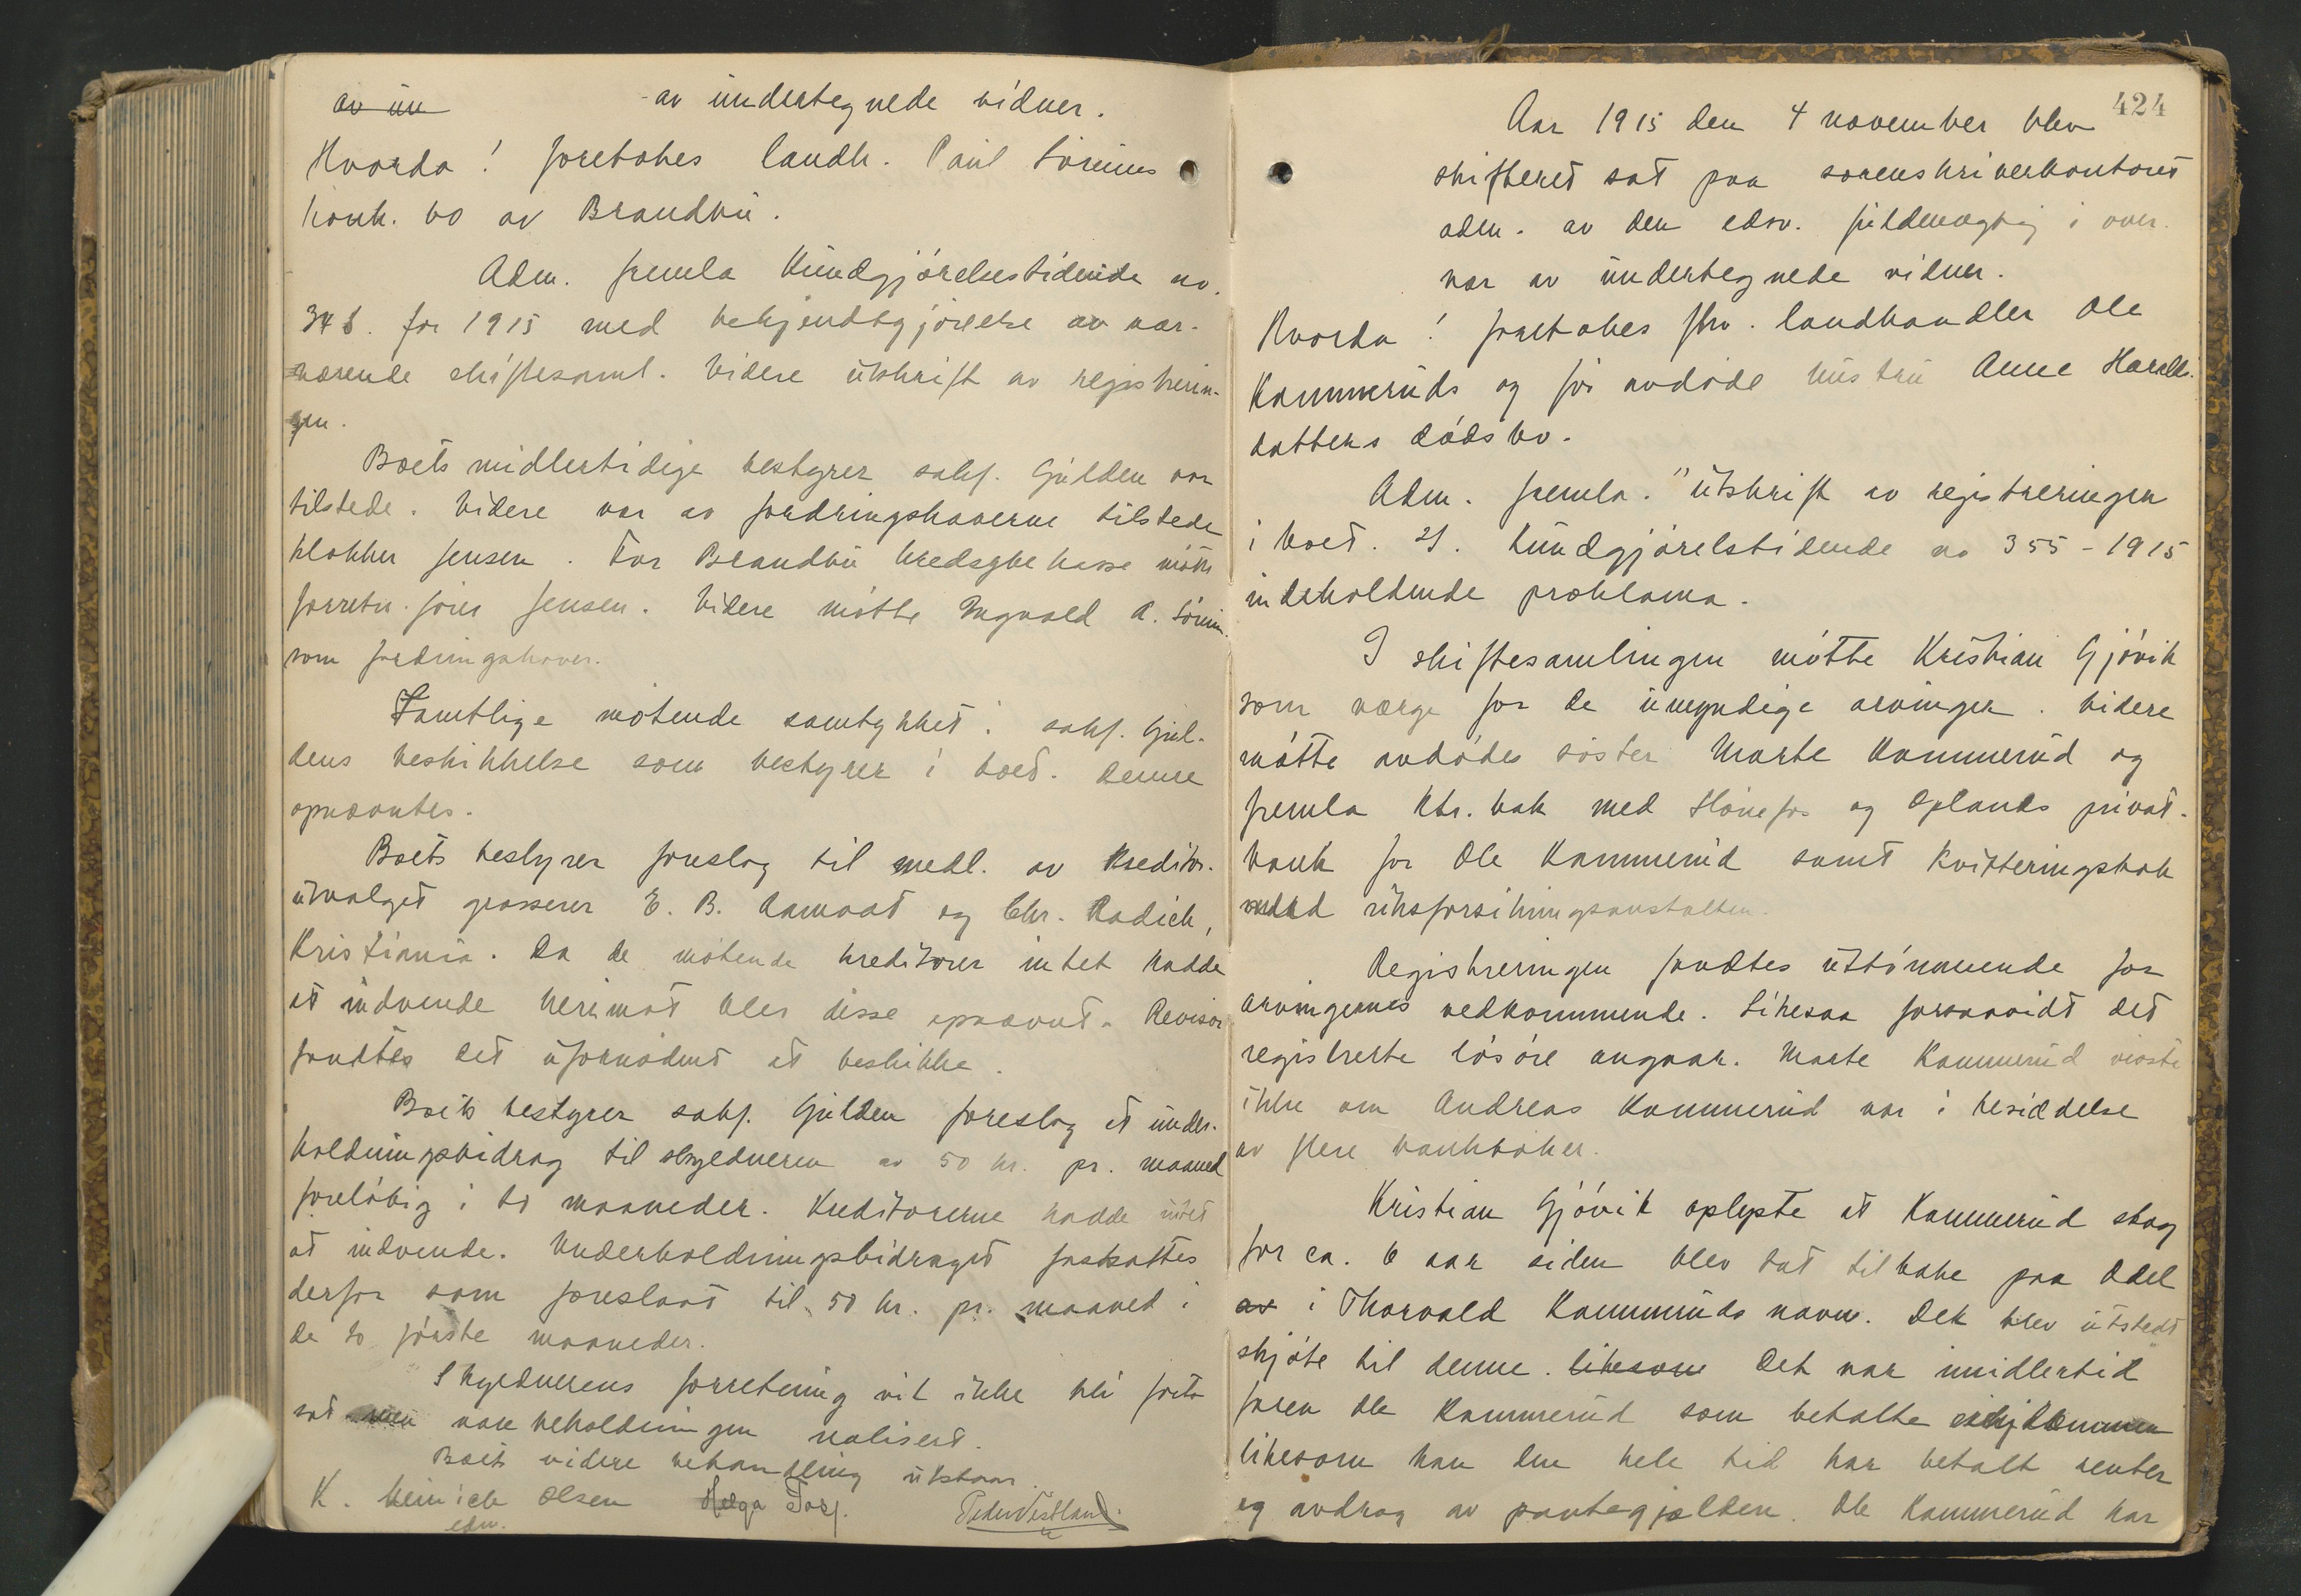 av un av undertegnede vidner.
Hvorda! foretokes landh. Paul Sørums
konk. bo av Brandbu.
Adm. fremla Kundgjørelsestidende no.
348. for 1915 med bekjendtgjørelse av nær-
værende skiftesaml. Videre utskrift av registrerin-
gen.
Boets midlertidige bestyrer sakf. Gulden var
tilstede. Videre var av fordringshaverne tilstede
klokker Jensen. For Brandbu kredsykekasse møtte
forretn. fører Jensen. Videre møtte Ingvald A. Sørum
som fordringshaver.
Samtlige møtende samtykket i sakf. Gul-
dens beskikkelse som bestyrer i boet. Denne
opnævntes.
Boets bestyrer foreslog til medl. av Kreditor-
utvalget grosserer E. B. Aamodt og Chr. Radich,
Kristiania. Da de møtende kreditorer intet hadde
at indvende herimot blev disse opnævnt. Revisor
fandtes det ufornødent at beskikke.
Boets bestyrer sakf. Gulden foreslog et under-
holdningsbidrag til skyldneren av 50 kr. pr. maaned
foreløbig i to maaneder. Kreditorerne hadde intet
at indvende. Underholdningsbidraget fastsattes
derfor som foreslaat til 50 kr. pr. maaned i
de to første maaneder.
Skyldnerens forretning vil ikke bli fort-
sat men varebeholdningen realisert.
Boets videre behandling utstaar.
K. Meinich Olsen Helga Torp. Peder Vestland.
edsv.
424
Aar 1915 den 4 november blev
skifteret sat paa sorenskriverkontoret
adm. av den edsv. fuldmægtig i over-
vær av undertegnede vidner.
Hvorda! foretokes fhv. landhandler Ole
Kammeruds og før avdøde hustru Anne Haralds-
datters dødsbo.
Adm. fremla. 1) utskrift av registreringen
i boet. 2). Kundgjørelstidende no 355 - 1915
indeholdende proklama.
I skiftesamlingen møtte Kristian Gjøvik
som værge for de umyndige arvinger. Videre
møtte avdødes søster Marte Kammerud og
fremla ktr. bok med Hønefos og Oplands privat-
bank for Ole Kammerud samt Kvitteringsbok
med riksforsikringsanstalten.
Registreringen fandtes uttømmende for
arvingernes vedkommende. Likesaa forsaavidt det
registrerte løsøre angaar. Marte Kammerud visste
ikke om Andreas Kammerud var i besiddelse
av flere bankbøker.
Kristian Gjøvik oplyste at Kammerud skog
for ca. 6 aar siden blev tat tilbake paa odel
av i Thorvald Kammeruds navn. Det blev utstedt
skjøte til denne. likesom Det var imidlertid
faren Ole Kammerud som betalte eiendommen
likesom han den hele tid har betalt renter
og avdrag av pantegjælden. Ole Kammerud har